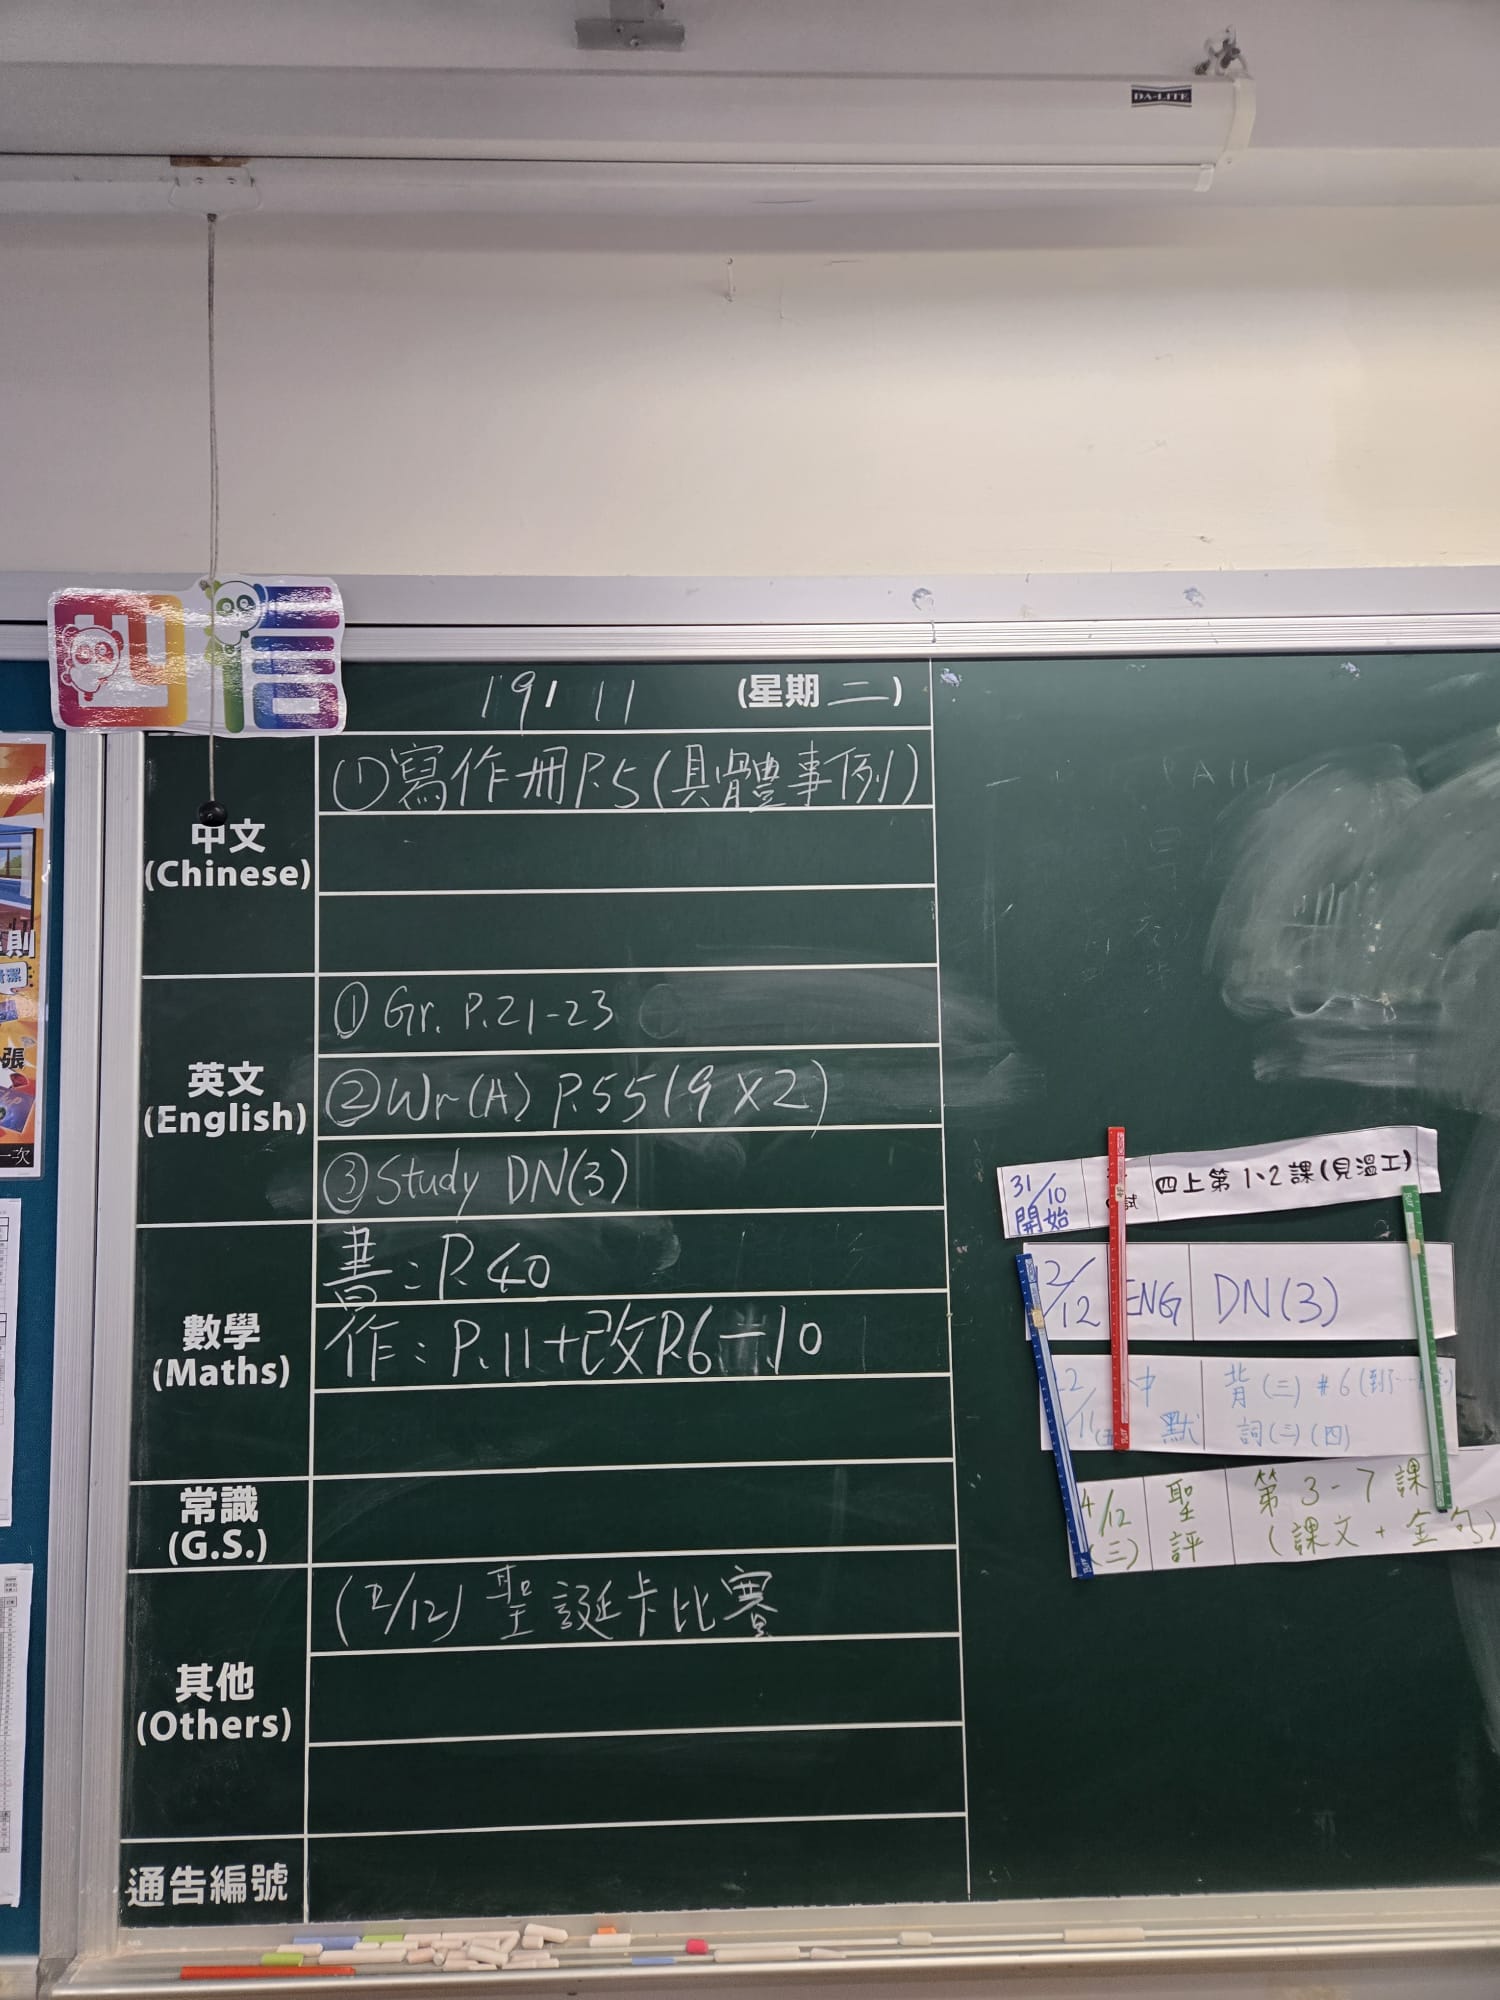 DA-LITE
四信
19/ 11 (星期二)
中文
(Chinese)
①寫作冊P.5(具體事例)
英文
(English)
①Gr. P.21-23
②Wr(A) P.55(9×2)
③Study DN(3)
數學
(Maths)
書:P.40
作:P.11+改P.6-10
常識
(G.S.)
其他
(Others)
(2/12) 聖誕卡比賽
通告編號
31/10 開始 試 四上第1、2課(見溫工)
2/12 ENG DN(3)
22/11(五) 中默 背(三)#6(到
詞(三)(四)
4/12(三) 聖評 第3-7課
(課文+金句)
則
張
一次